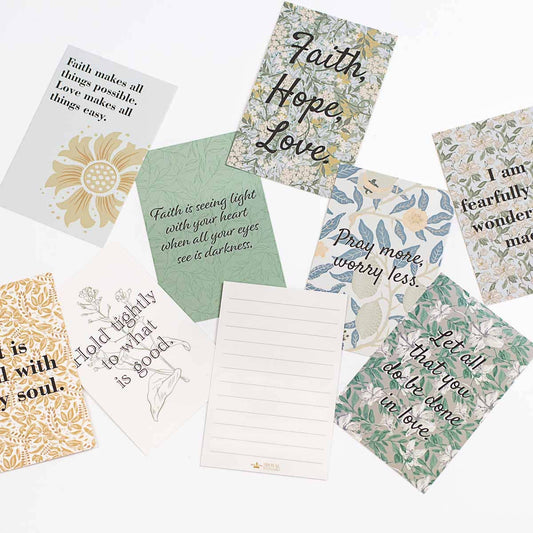 Faith makes all
things possible.
Love makes all
things easy.
Faith,
Hope,
Love.
Faith is seeing light
with your heart
when all your eyes
see is darkness.
I am
fearfully
wonder
mad
Pray more,
worry less.
t is
l with
y soul.
Hold tightly
to what
is good.
Let all
that you
do be done
in love.